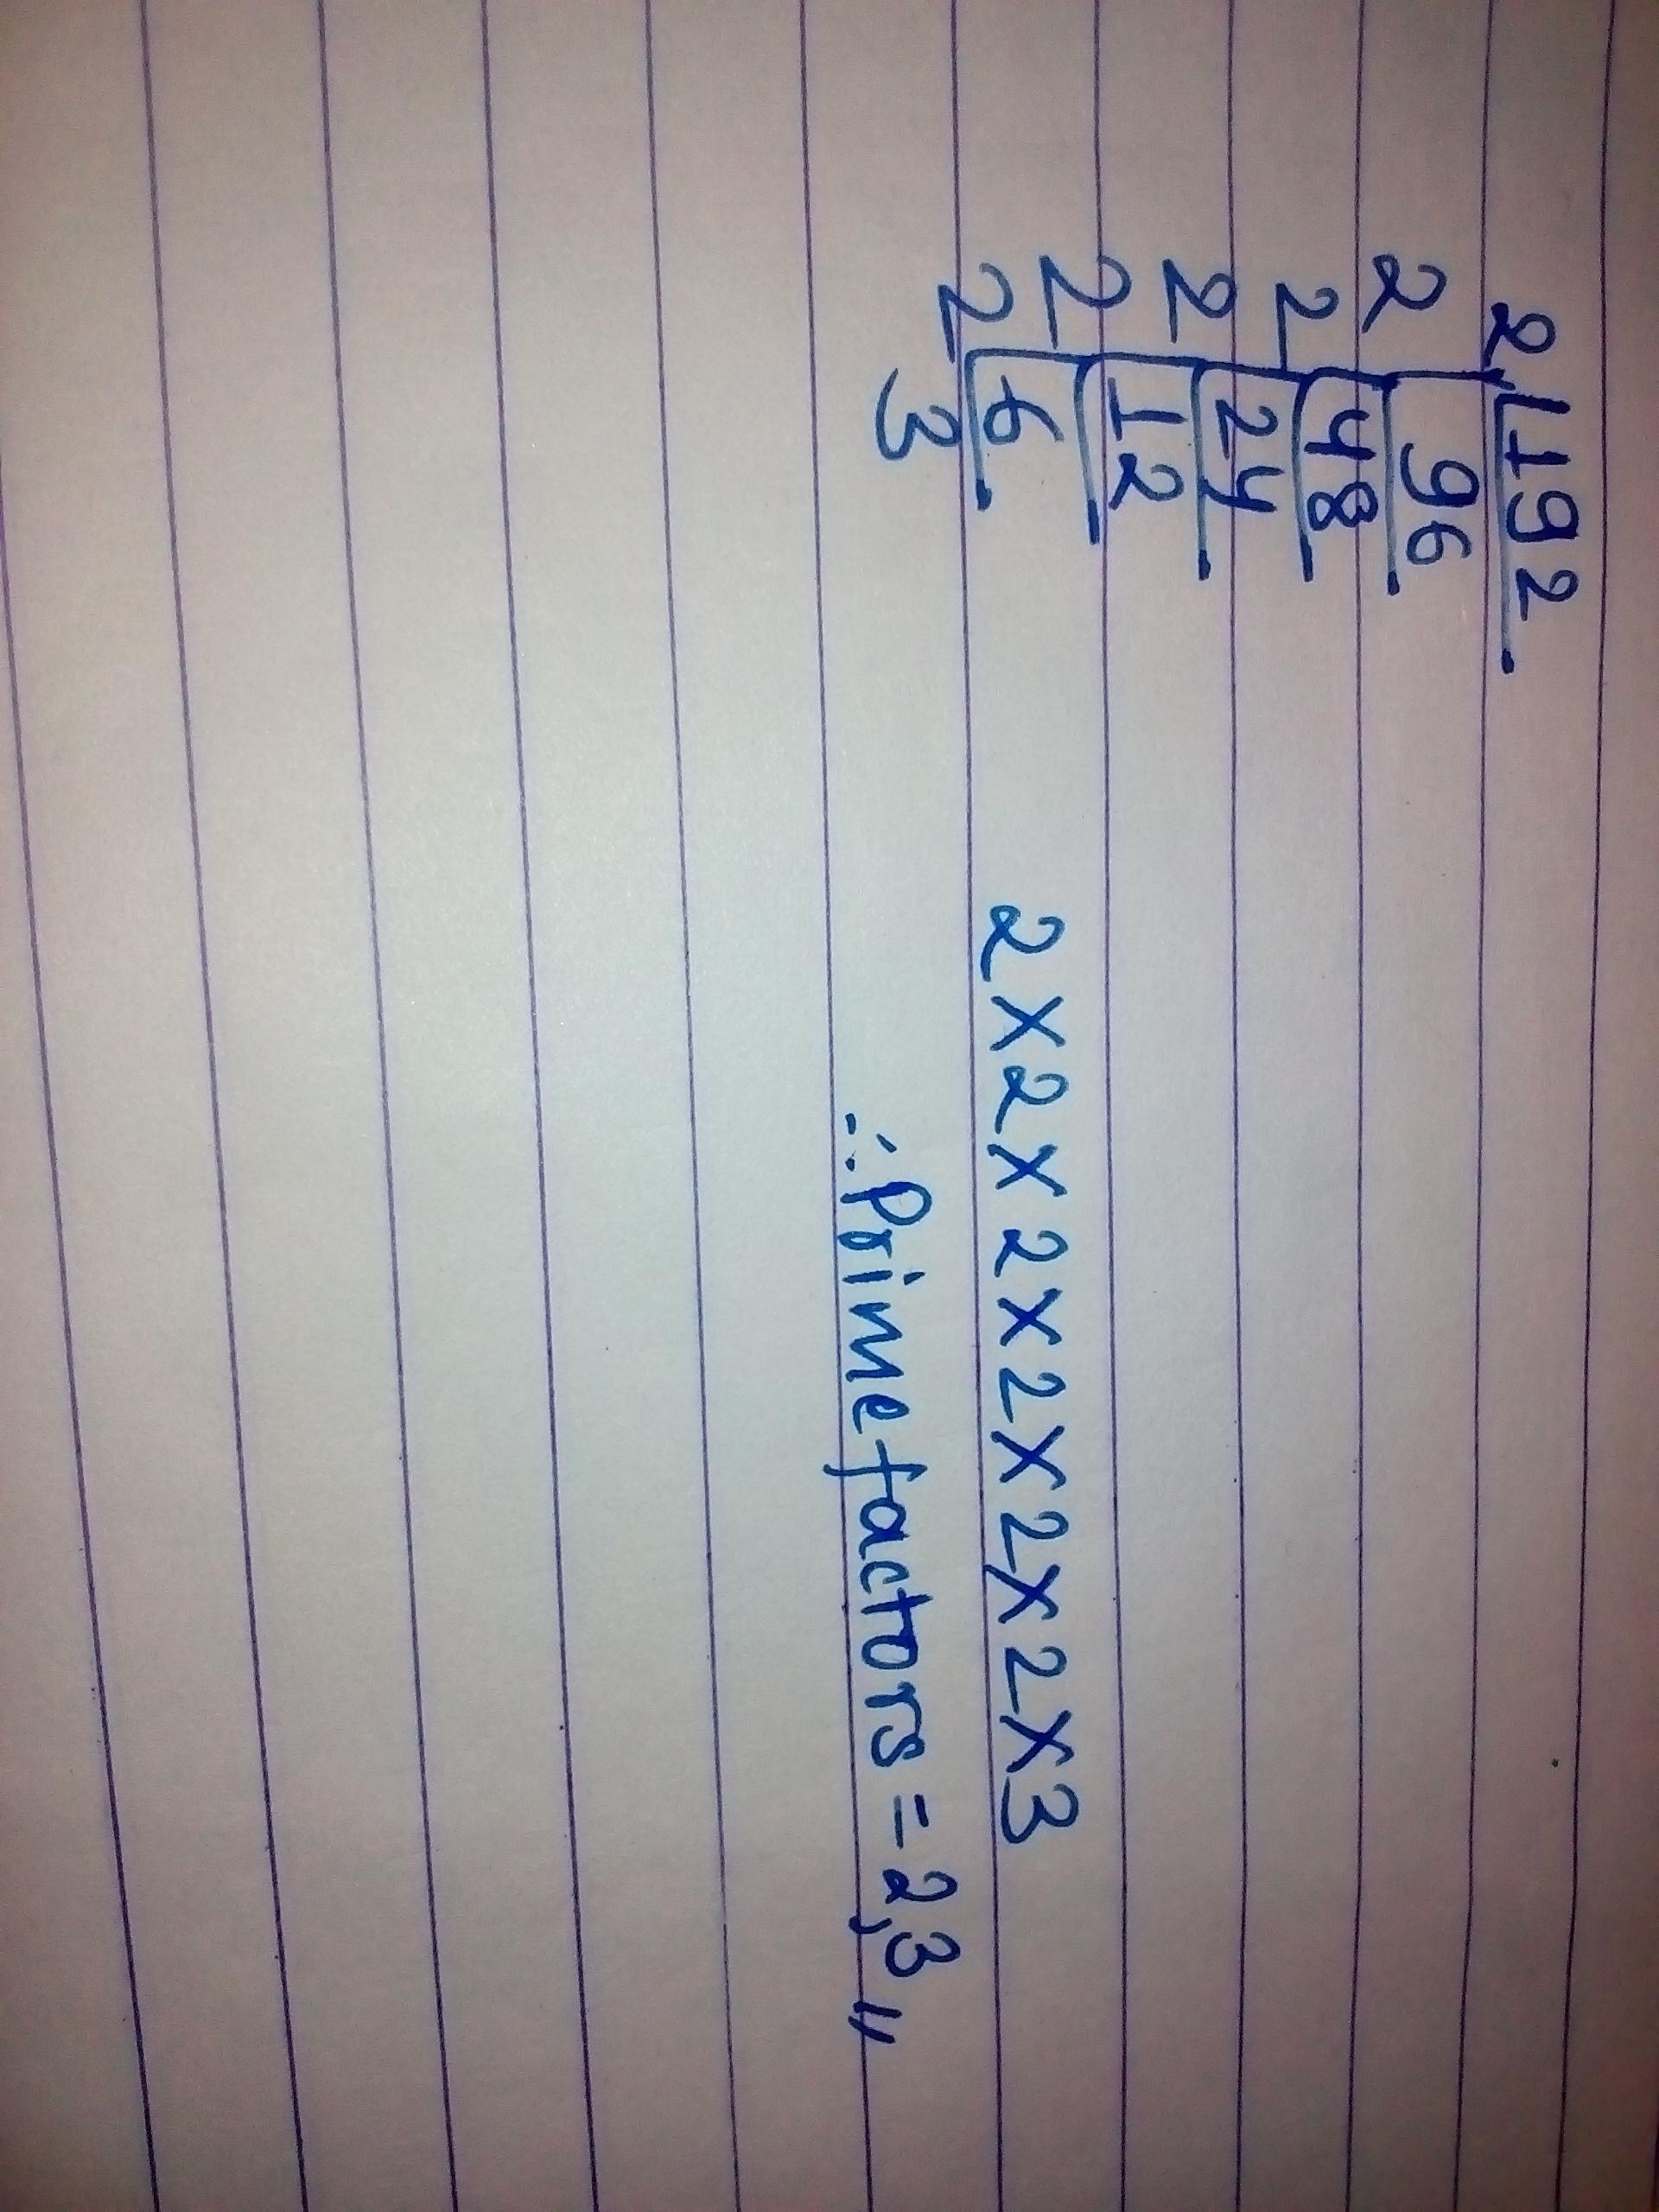 2 192
2 96
2 48
2 24
2 12
2 6
3
2x2x2x2x2x2x3
∴ Prime factors = 2,3 〃